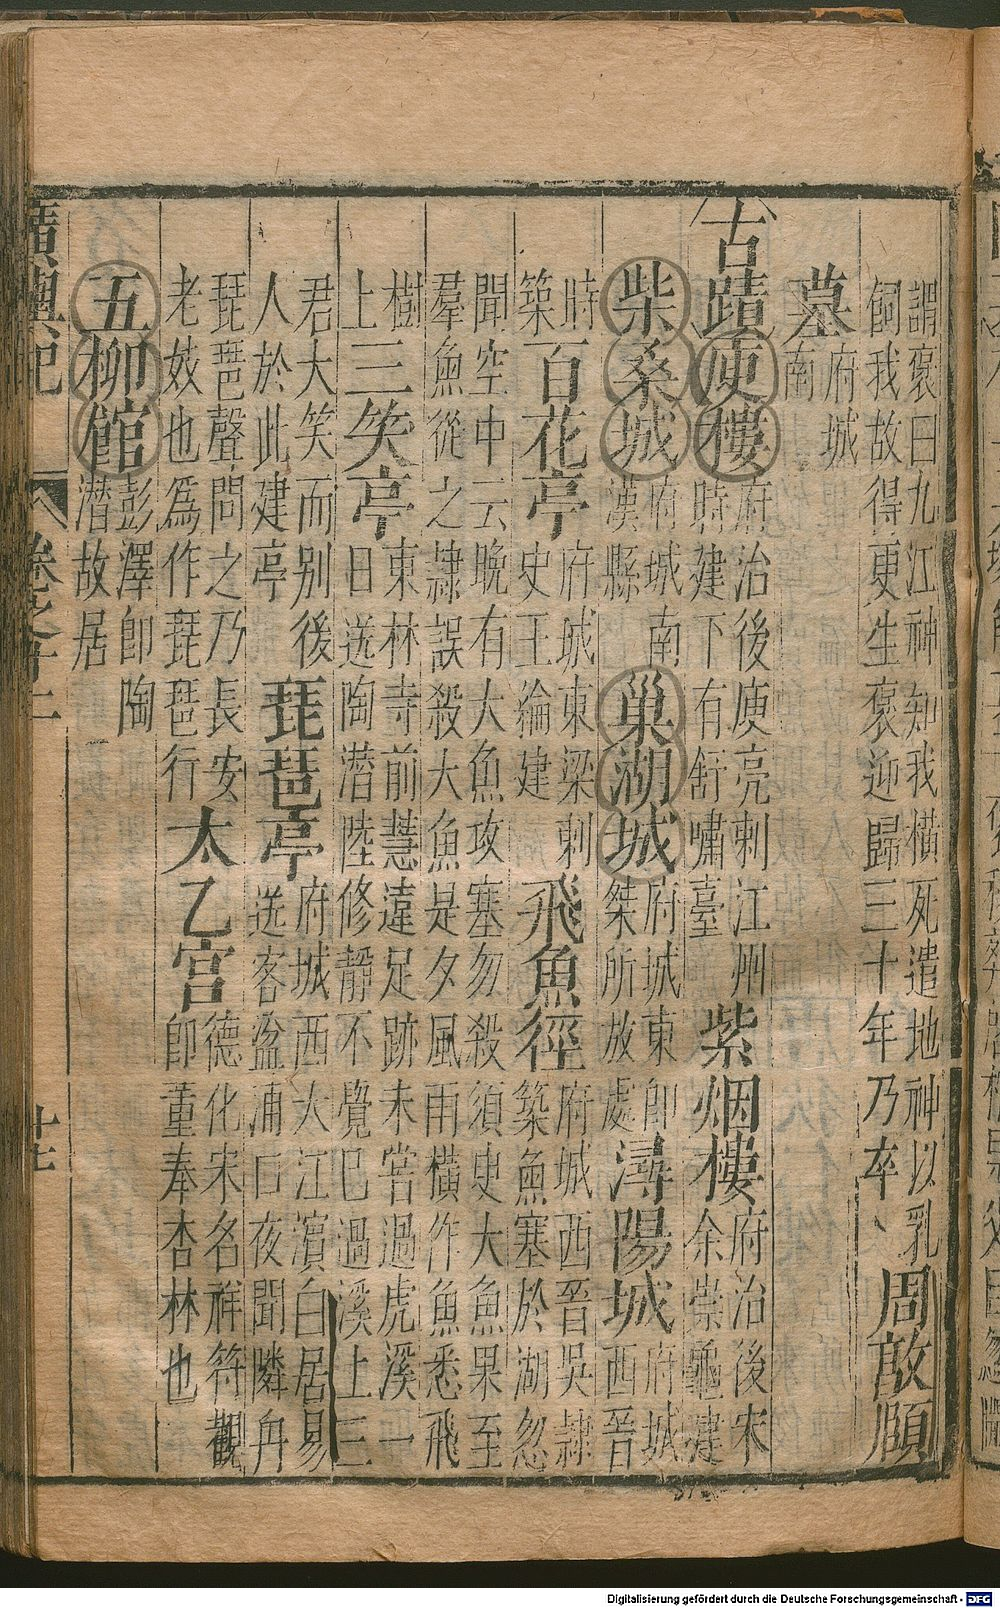 謂褒曰九江神知我橫死遣地神以乳
飼我故得更生褒迎歸三十年乃卒
周敦頤
墓
府城
南
古蹟
庾樓
府治後庾亮刺江州
時建下有舒嘯臺
紫烟樓
府治後宋
余崇龜建
柴桑城
府城南
漢縣
巢湖城
府城東卽
桀所放處
潯陽城
府城
西晉
時
築
百花亭
府城東梁刺
史王綸建
飛魚徑
府城西晉吳隷
築魚塞於湖忽
聞空中云晚有大魚攻塞勿殺須臾大魚果至
羣魚從之隷誤殺大魚是夕風雨橫作魚悉飛
樹
上
三笑亭
東林寺前慧遠足跡未嘗過虎溪一
日送陶潛陸修靜不覺已過溪上三
君大笑而别後
人於此建亭
琵琶亭
府城西大江濵白居易
送客湓浦口夜聞隣舟
琵琶聲問之乃長安
老妓也爲作琵琶行
太乙宮
德化宋名祥符觀
卽董奉杏林也
五柳館
彭澤卽陶
潛故居
廣輿記
卷之十二
十七
Digitalisierung gefördert durch die Deutsche Forschungsgemeinschaft - DFG